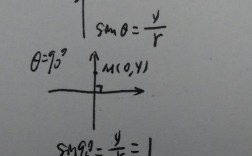 sinθ = y/r
θ=90°
M(0,y)
sin90° = y/r = 1